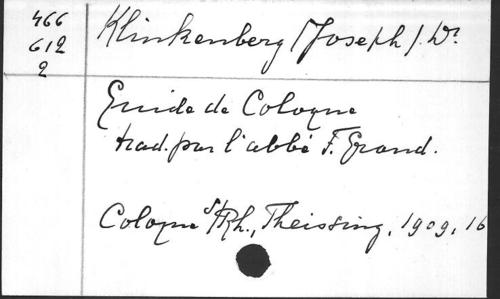 466
612
2
Klinkenberg (Joseph). Dr
Guide de Cologne
trad. par l'abbé F. Grand.
Cologne s/Rh., Theissing, 1909, 16